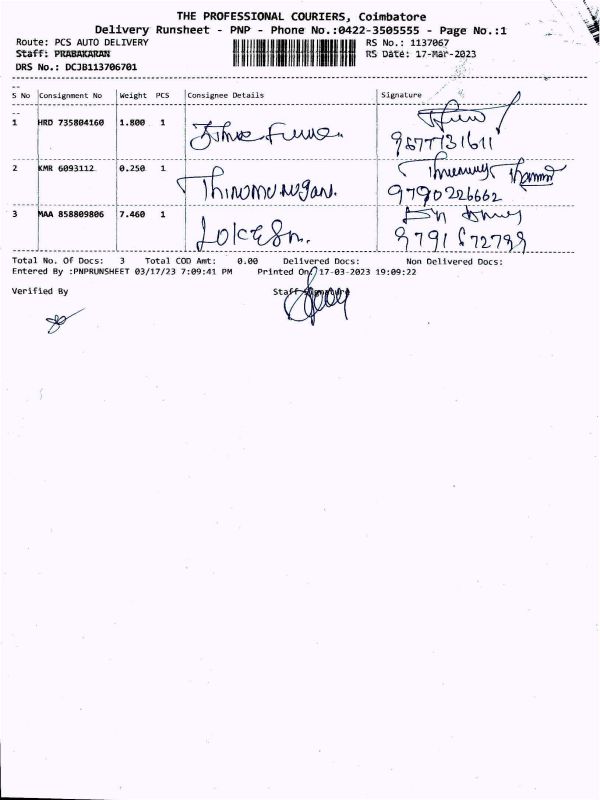 THE PROFESSIONAL COURIERS, Coimbatore
Delivery Runsheet - PNP - Phone No.:0422-3505555 - Page No.:1
Route: PCS AUTO DELIVERY RS No.: 1137067
Staff: PRABAKARAN RS Date: 17-Mar-2023
DRS No.: DCJB113706701
S No Consignment No Weight PCS Consignee Details Signature
1 HRD 735804160 1.800 1
9677731611
2 KMR 6093112 0.250 1
Thirumurugan.
9790226662
3 MAA 858809806 7.460 1
Lokesh.
Total No. Of Docs: 3 Total COD Amt: 0.00 Delivered Docs: Non Delivered Docs:
Entered By :PNPRUNSHEET 03/17/23 7:09:41 PM Printed On: 17-03-2023 19:09:22
Verified By Staff Signature